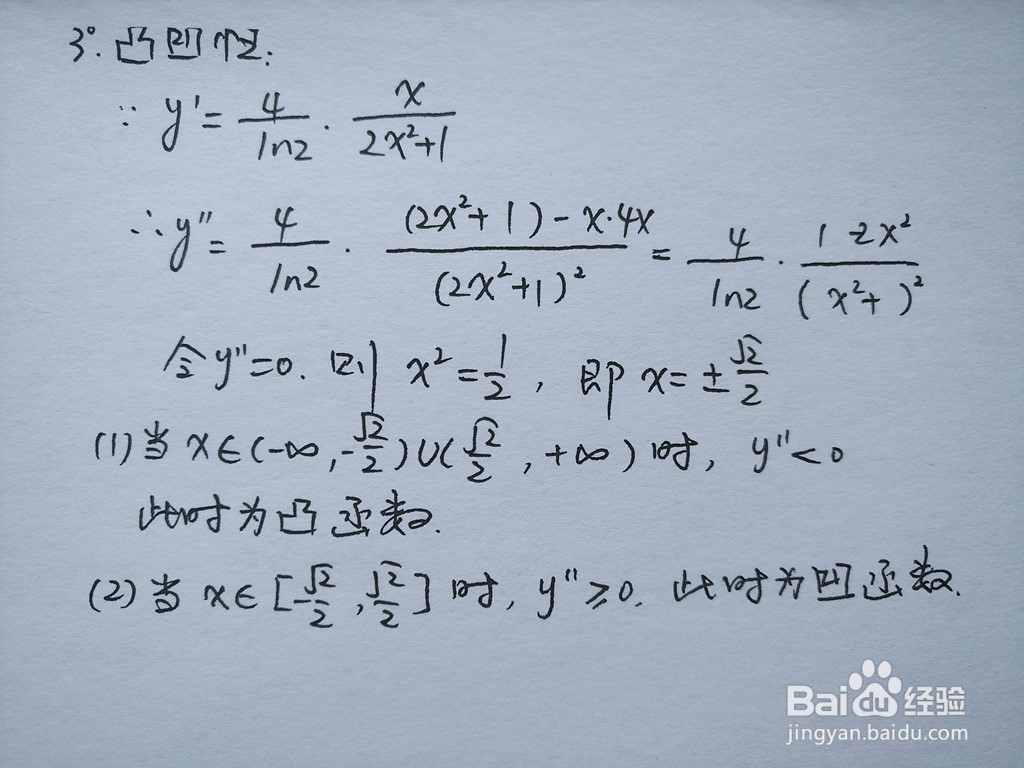 3°. 凸凹性:
∵ y' = 4/ln2 · x/(2x²+1)
∴ y'' = 4/ln2 · ((2x²+1)-x·4x)/(2x²+1)² = 4/ln2 · (1 -2x²)/( x²+ )²
令y''=0. 则 x²=1/2, 即 x=±√2/2
(1)当 x∈(-∞,-√2/2)∪(√2/2,+∞)时, y''<0
此时为凸函数.
(2)当 x∈[-√2/2,√2/2]时, y''≥0. 此时为凹函数.
Baidu经验
jingyan.baidu.com